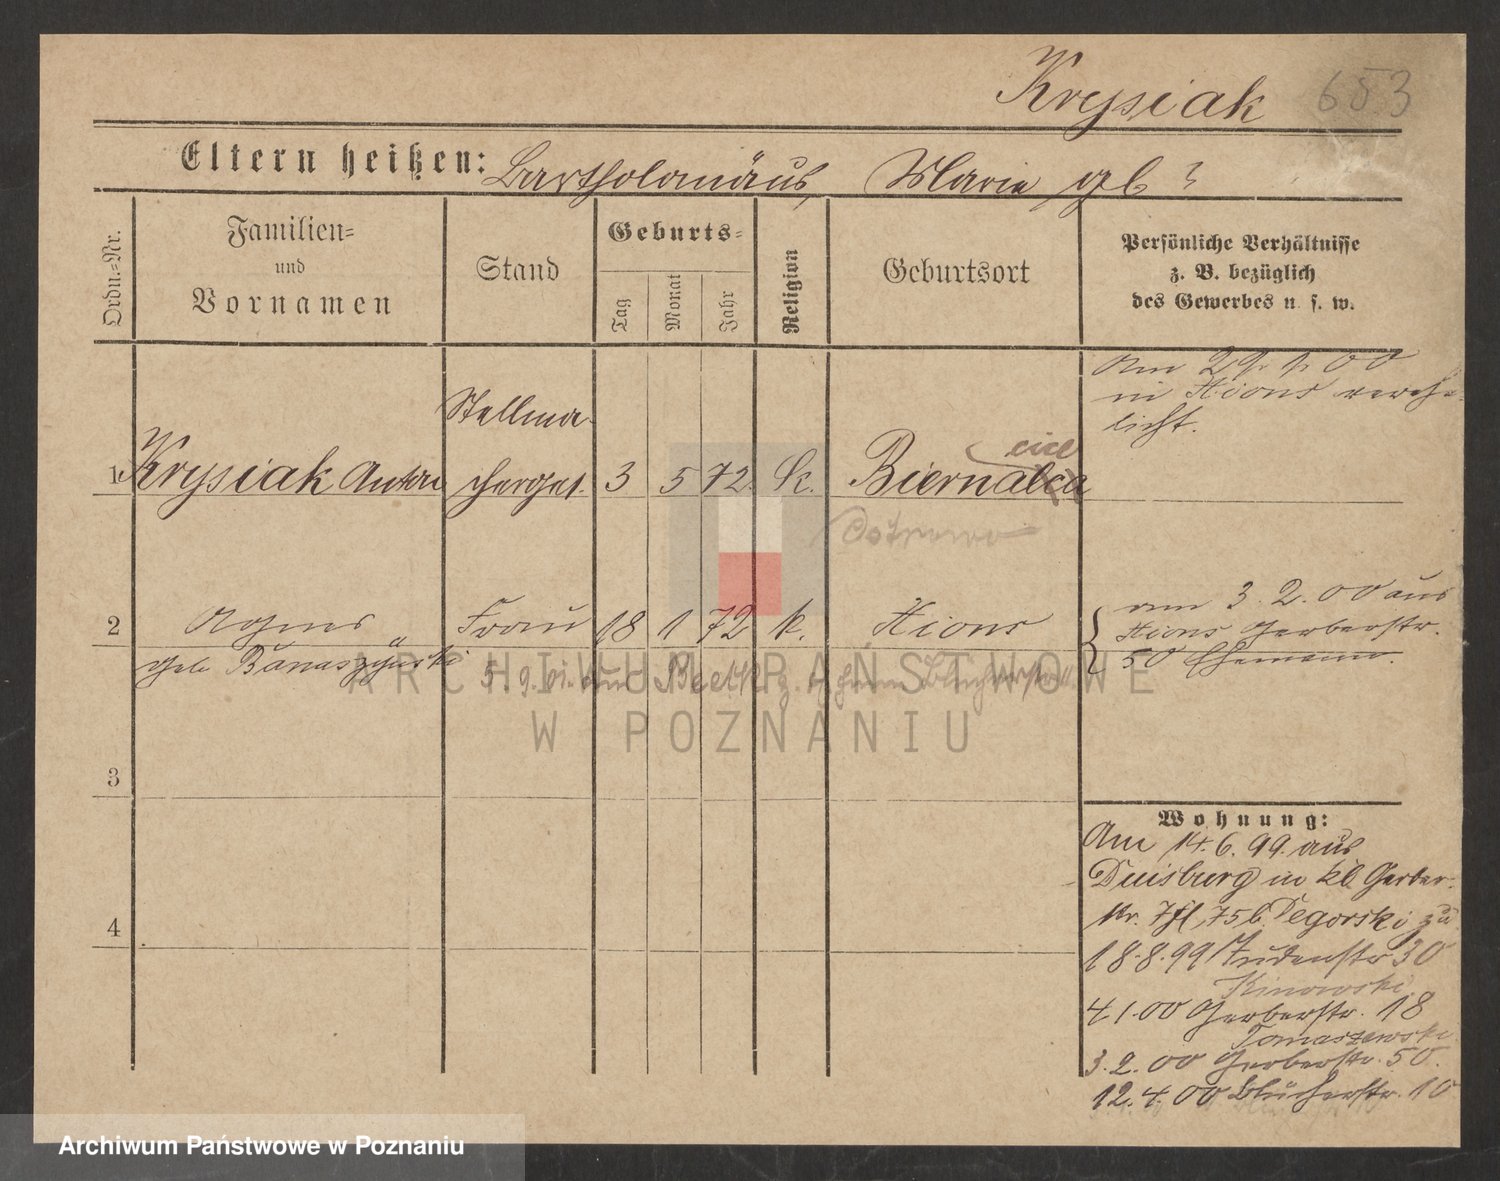 Krysiak 653
Eltern heißen: Bartholomäus, Marie gb ?
Ordn.=Nr.
Familien=
und
Vornamen
Stand
Geburts=
Tag
Monat
Jahr
Religion
Geburtsort
Persönliche Verhältnisse
z. B. bezüglich
des Gewerbes u. s. w.
Am 29. 1. 00
in Xions verehe-
licht.
Stellma-
1 Krysiak Anton cherges. 3 5 72. k. Biernatca
cice
Ostrowo
2 Agnes Frau 18 1 72 k. Xions
geb Banaszynski
am 3. 2. 00 aus
Xions Gerberstr.
50 Ehemann.
5. 9. 01. aus Beek
3
4
Wohnung:
Am 14. 6. 99. aus
Duisburg in kl. Gerber-
str. 7 Segorski zu
18. 8. 99 Judenstr 30
Kinowski.
4 1. 00 Gerberstr. 18
Tomaszewski
3. 2. 00 Gerberstr. 50.
12. 4. 00 Blücherstr. 10
ARCHIWUM PAŃSTWOWE
W POZNANIU
Archiwum Państwowe w Poznaniu